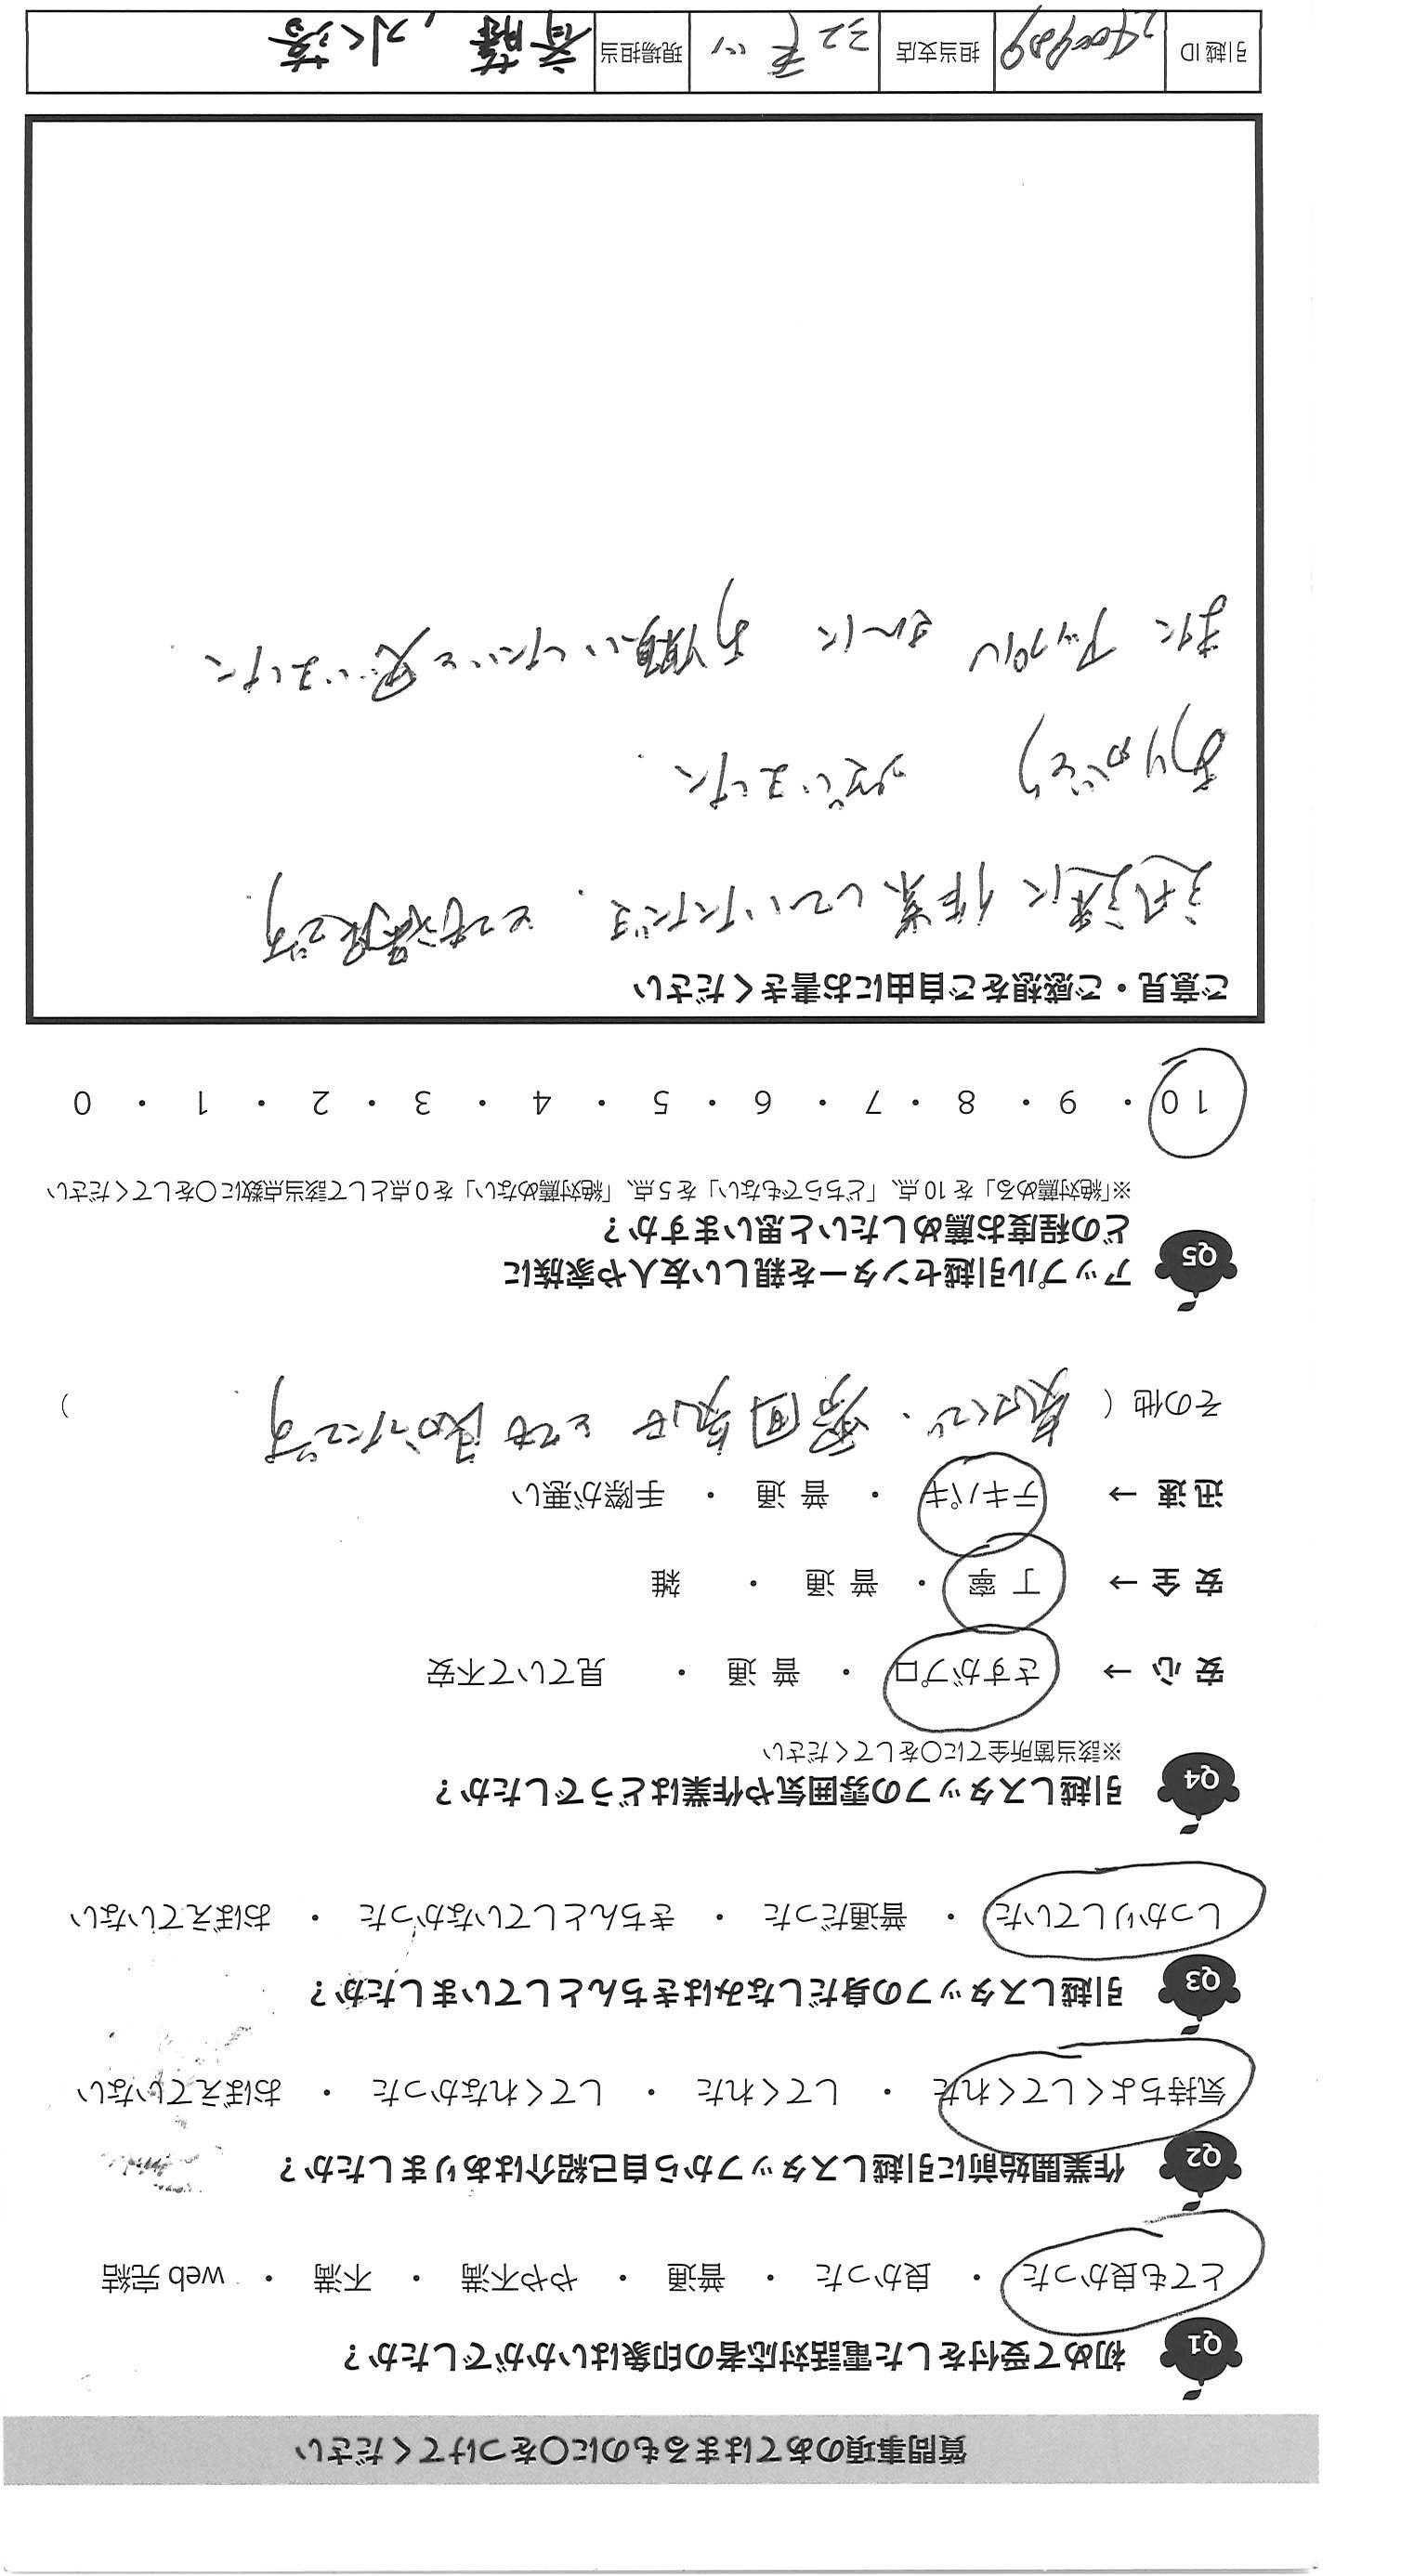 質問事項のあてはまるものに〇をつけてください
Q1 初めて受付をした電話対応者の印象はいかがでしたか？
とても良かった ・ 良かった ・ 普通 ・ やや不満 ・ 不満 ・ web 完結
Q2 作業開始前に引越しスタッフから自己紹介はありましたか？
気持ちよくしてくれた ・ してくれた ・ してくれなかった ・ おぼえていない
Q3 引越しスタッフの身だしなみはきちんとしていましたか？
しっかりしていた ・ 普通だった ・ きちんとしていなかった ・ おぼえていない
Q4 引越しスタッフの雰囲気や作業はどうでしたか？
※該当箇所全てに〇をしてください
安 心 → さすがプロ ・ 普 通 ・ 見ていて不安
安 全 → 丁 寧 ・ 普 通 ・ 雑
迅 速 → テキパキ ・ 普 通 ・ 手際が悪い
その他（ 気さくで、雰囲気もとても良かったです ）
Q5 アップル引越センターを親しい友人や家族に
どの程度お薦めしたいと思いますか？
※「絶対薦める」を 10 点、「どちらでもない」を 5 点、「絶対薦めない」を 0 点として該当点数に〇をしてください
10 ・ 9 ・ 8 ・ 7 ・ 6 ・ 5 ・ 4 ・ 3 ・ 2 ・ 1 ・ 0
ご意見・ご感想をご自由にお書きください
迅速に作業していただき、とても満足です
ありがとう ございました.
また アップル さんに お願いしたいと思いました.
引越 ID 担当支店 現場担当 斉藤,